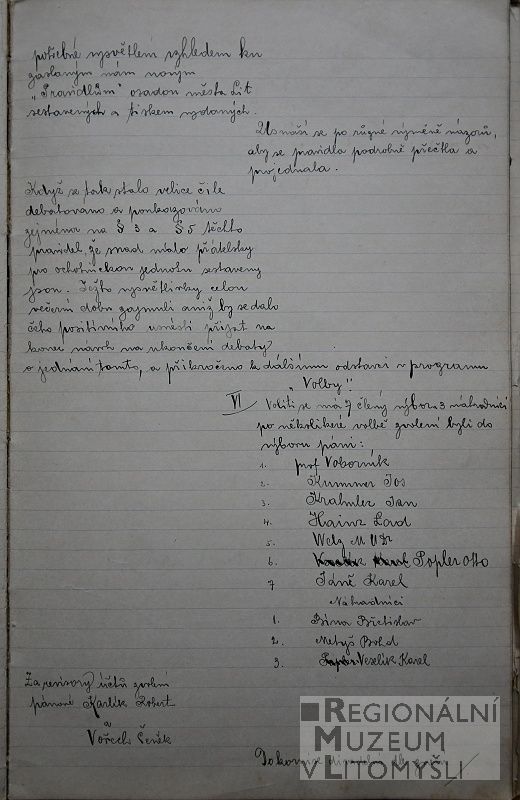 potřebné vysvětlení vzhledem ku
zaslaným nám novým
„Pravidlům" osadou města Lit
sestavených a tiskem vydaných.
Usnáší se po různé výměně názorů,
aby se pravidla podrobně přečtla a
projednala.
Když se tak stalo velice čile
debatováno a poukazováno
zejména na § 3 a § 5 těchto
pravidel, že snad málo přátelsky
pro ochotnickou jednotu sestaveny
jsou. Tyto vysvětlivky celou
večerní dobu zajmuli aniž by se dalo
čeho positivního usnésti přijat na
konec návrh na ukončení debaty
o jednání tomto, a přikročeno k dalšímu odstavci v programu
„Volby"
VI Voliti se má 7 člený výbor a 3 náhradníci
po několikeré volbě zvoleni byli do
výboru páni:
1. prof Voborník
2. Kummer Jos
3. Krahulec Jan
4. Hainz Lad
5. Welz MUDr
6. Popler Otto
7 Karel
Náhradníci
1. Bína Břetislav
2. Metyš Bohd
3. Veselík Karel
Za revisory účtů zvoleni
pánové Karlík Robert
a
Vořech Čeněk
Pokonvice
REGIONÁLNÍ
MUZEUM
V LITOMYŠLI